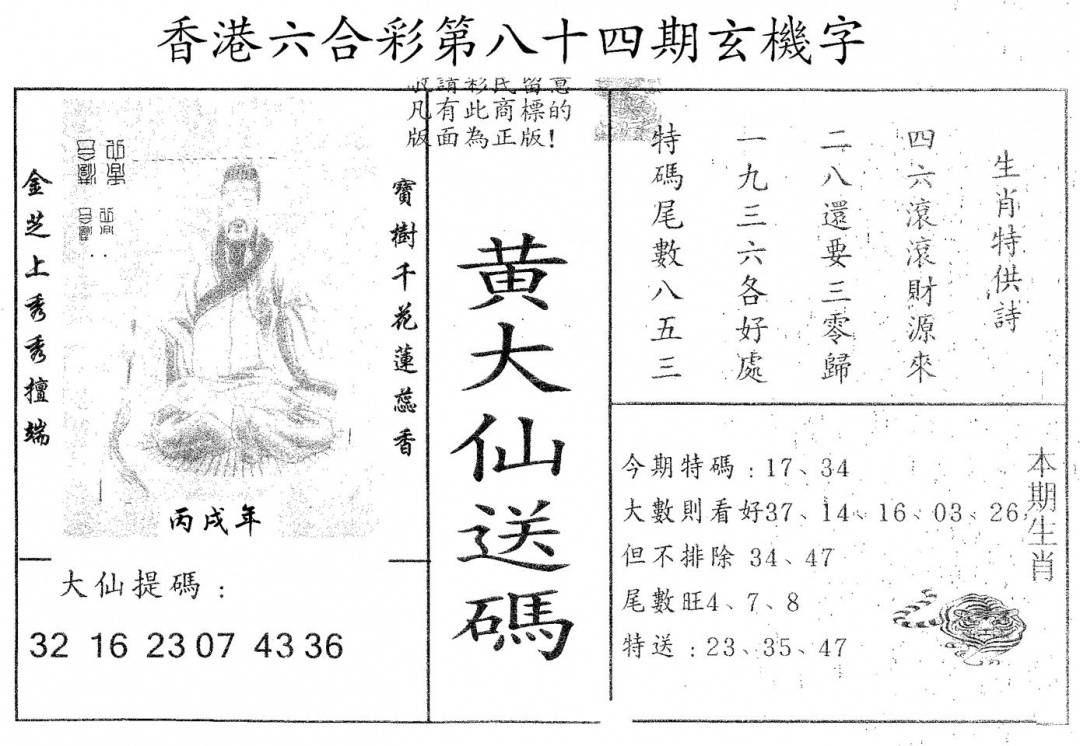 香港六合彩第八十四期玄機字
凡有此商標的
版面為正版!
金芝上秀秀擅端
寶樹千花蓮蕊香
丙戌年
大仙提碼：
32 16 23 07 43 36
黃大仙送碼
生肖特供詩
四六滾滾財源來
二八還要三零歸
一九三六各好處
特碼尾數八五三
本期生肖
今期特碼：17、34
大數則看好37、14、16、03、26
但不排除 34、47
尾數旺4、7、8
特送：23、35、47